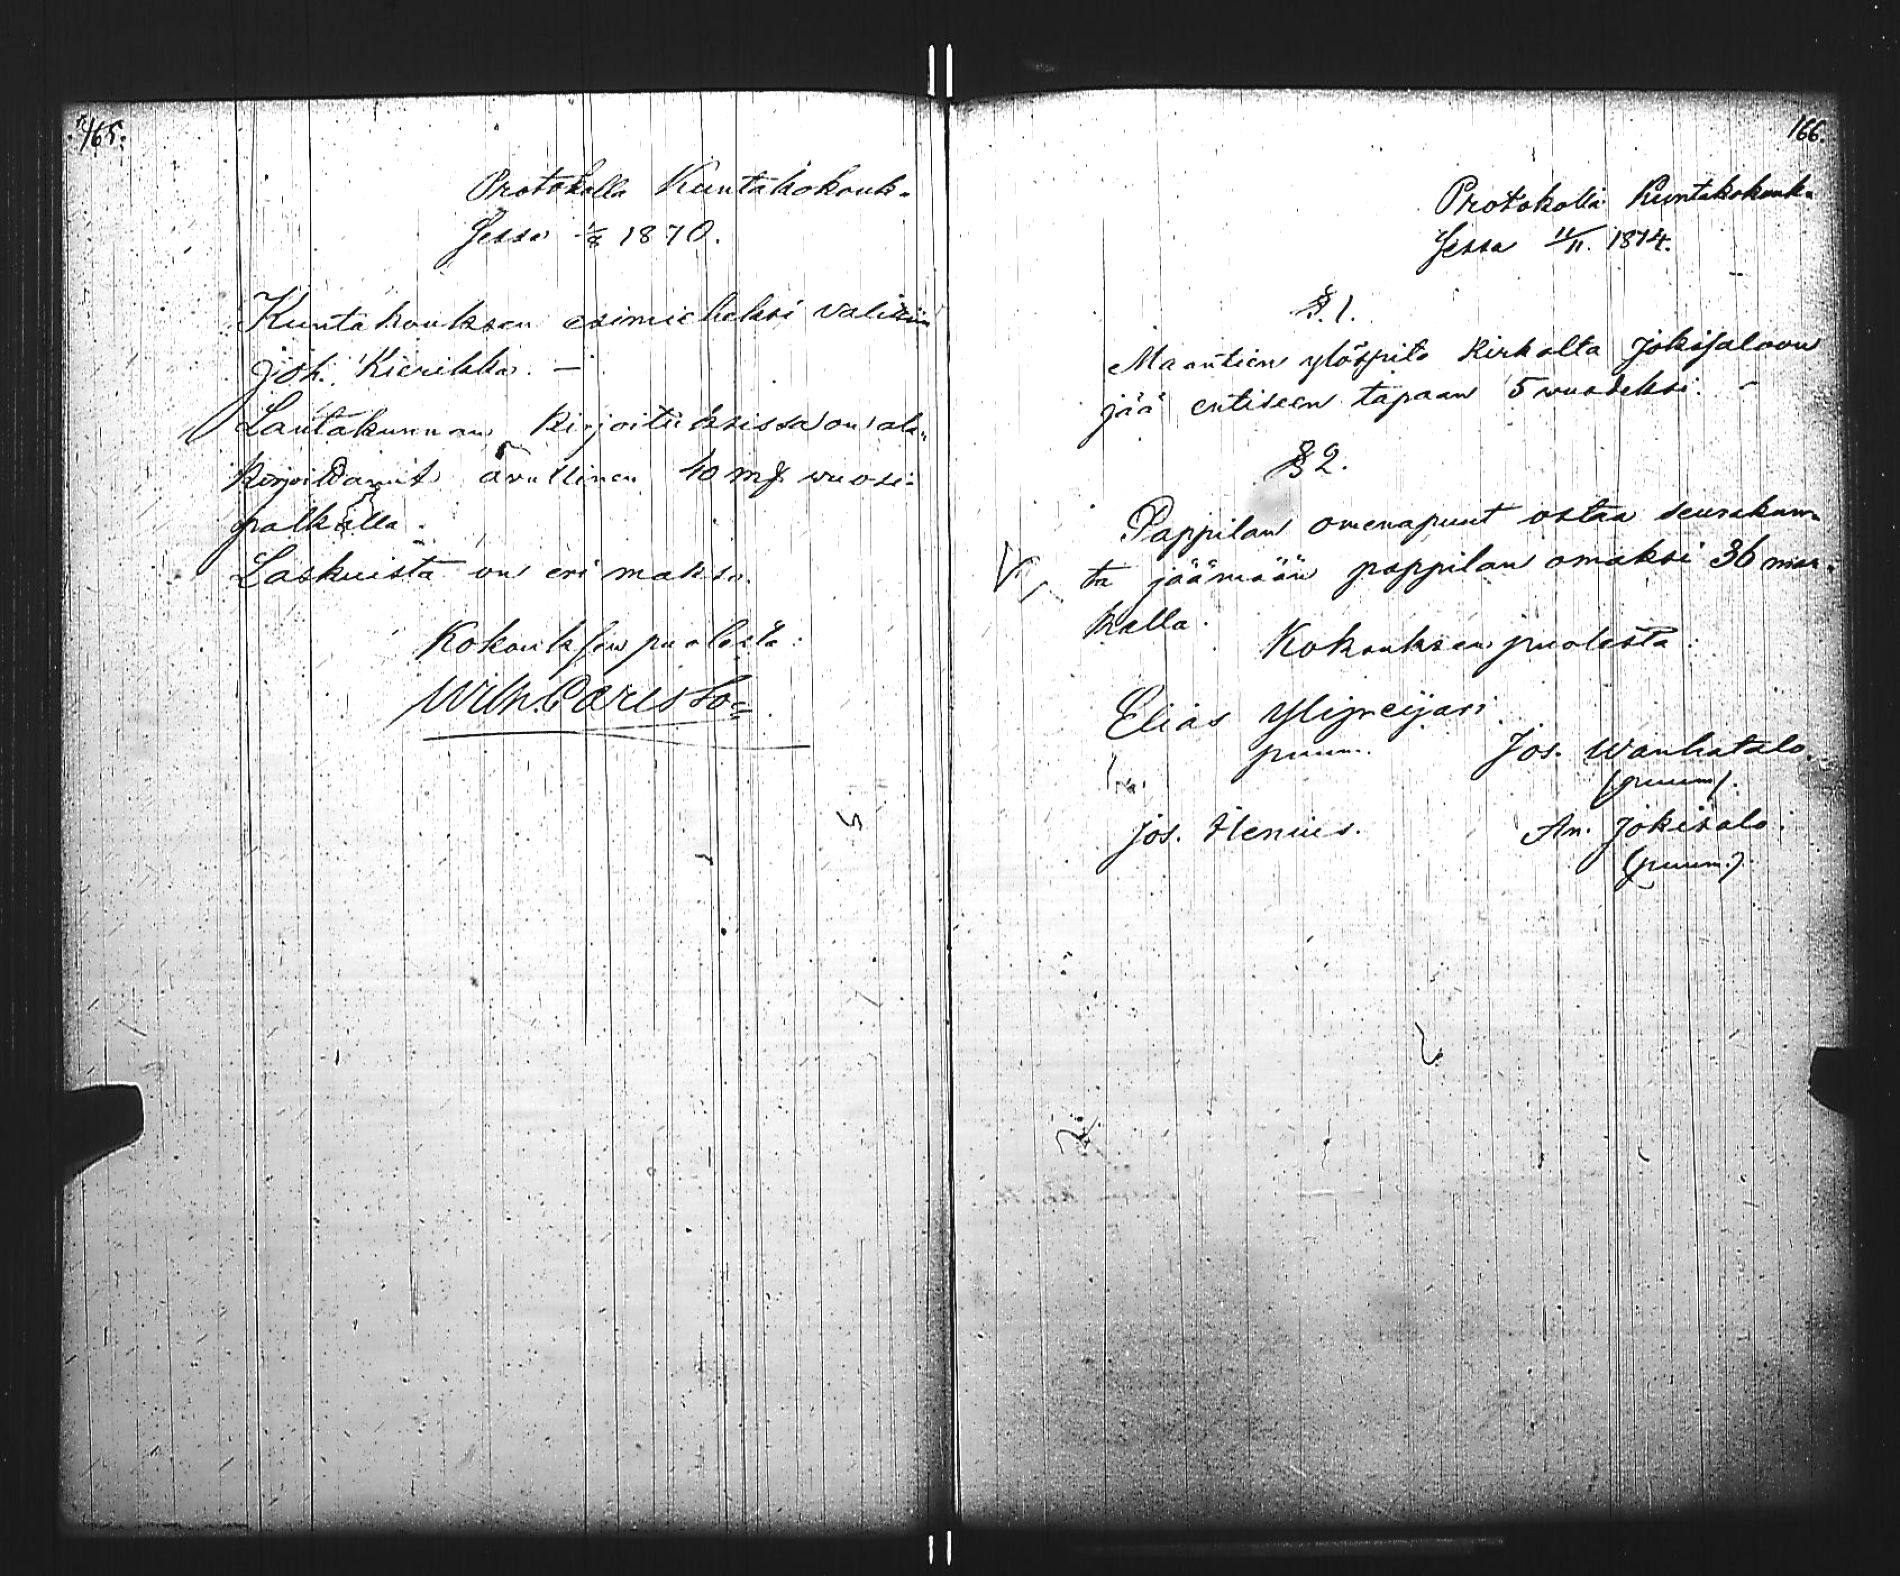 165.
Protokolla Kuntakokouk-
sessa 1/8 1870.
Kuntakouksen esimieheksi valittiin
Joh. Kierikka. —
Lautakunnan Kirjoituksissa on ala-
kirjoittanut avullinen 40 mk wuosi-
palkalla.
Laskuista on eri maksu.
Kokouksen puolesta:
Wilh. Carlsso
166.
Protokolla Kuntakokouk-
sessa 11/11. 1874.
§ 1.
Maantien ylöspito Kirkolta Jokisaloon
jää entiseen tapaan 5 wuodeksi. -
§ 2.
Pappilan omenapuut ostaa seurakun-
ta jäämään pappilan omaksi 36 mar-
kalla.
Kokouksen puolesta:
Elias Ylipeijari.
puum.
Jos. Wanhatalo.
(puum).
Jos. Henius.
An. Jokisalo.
(puum.).